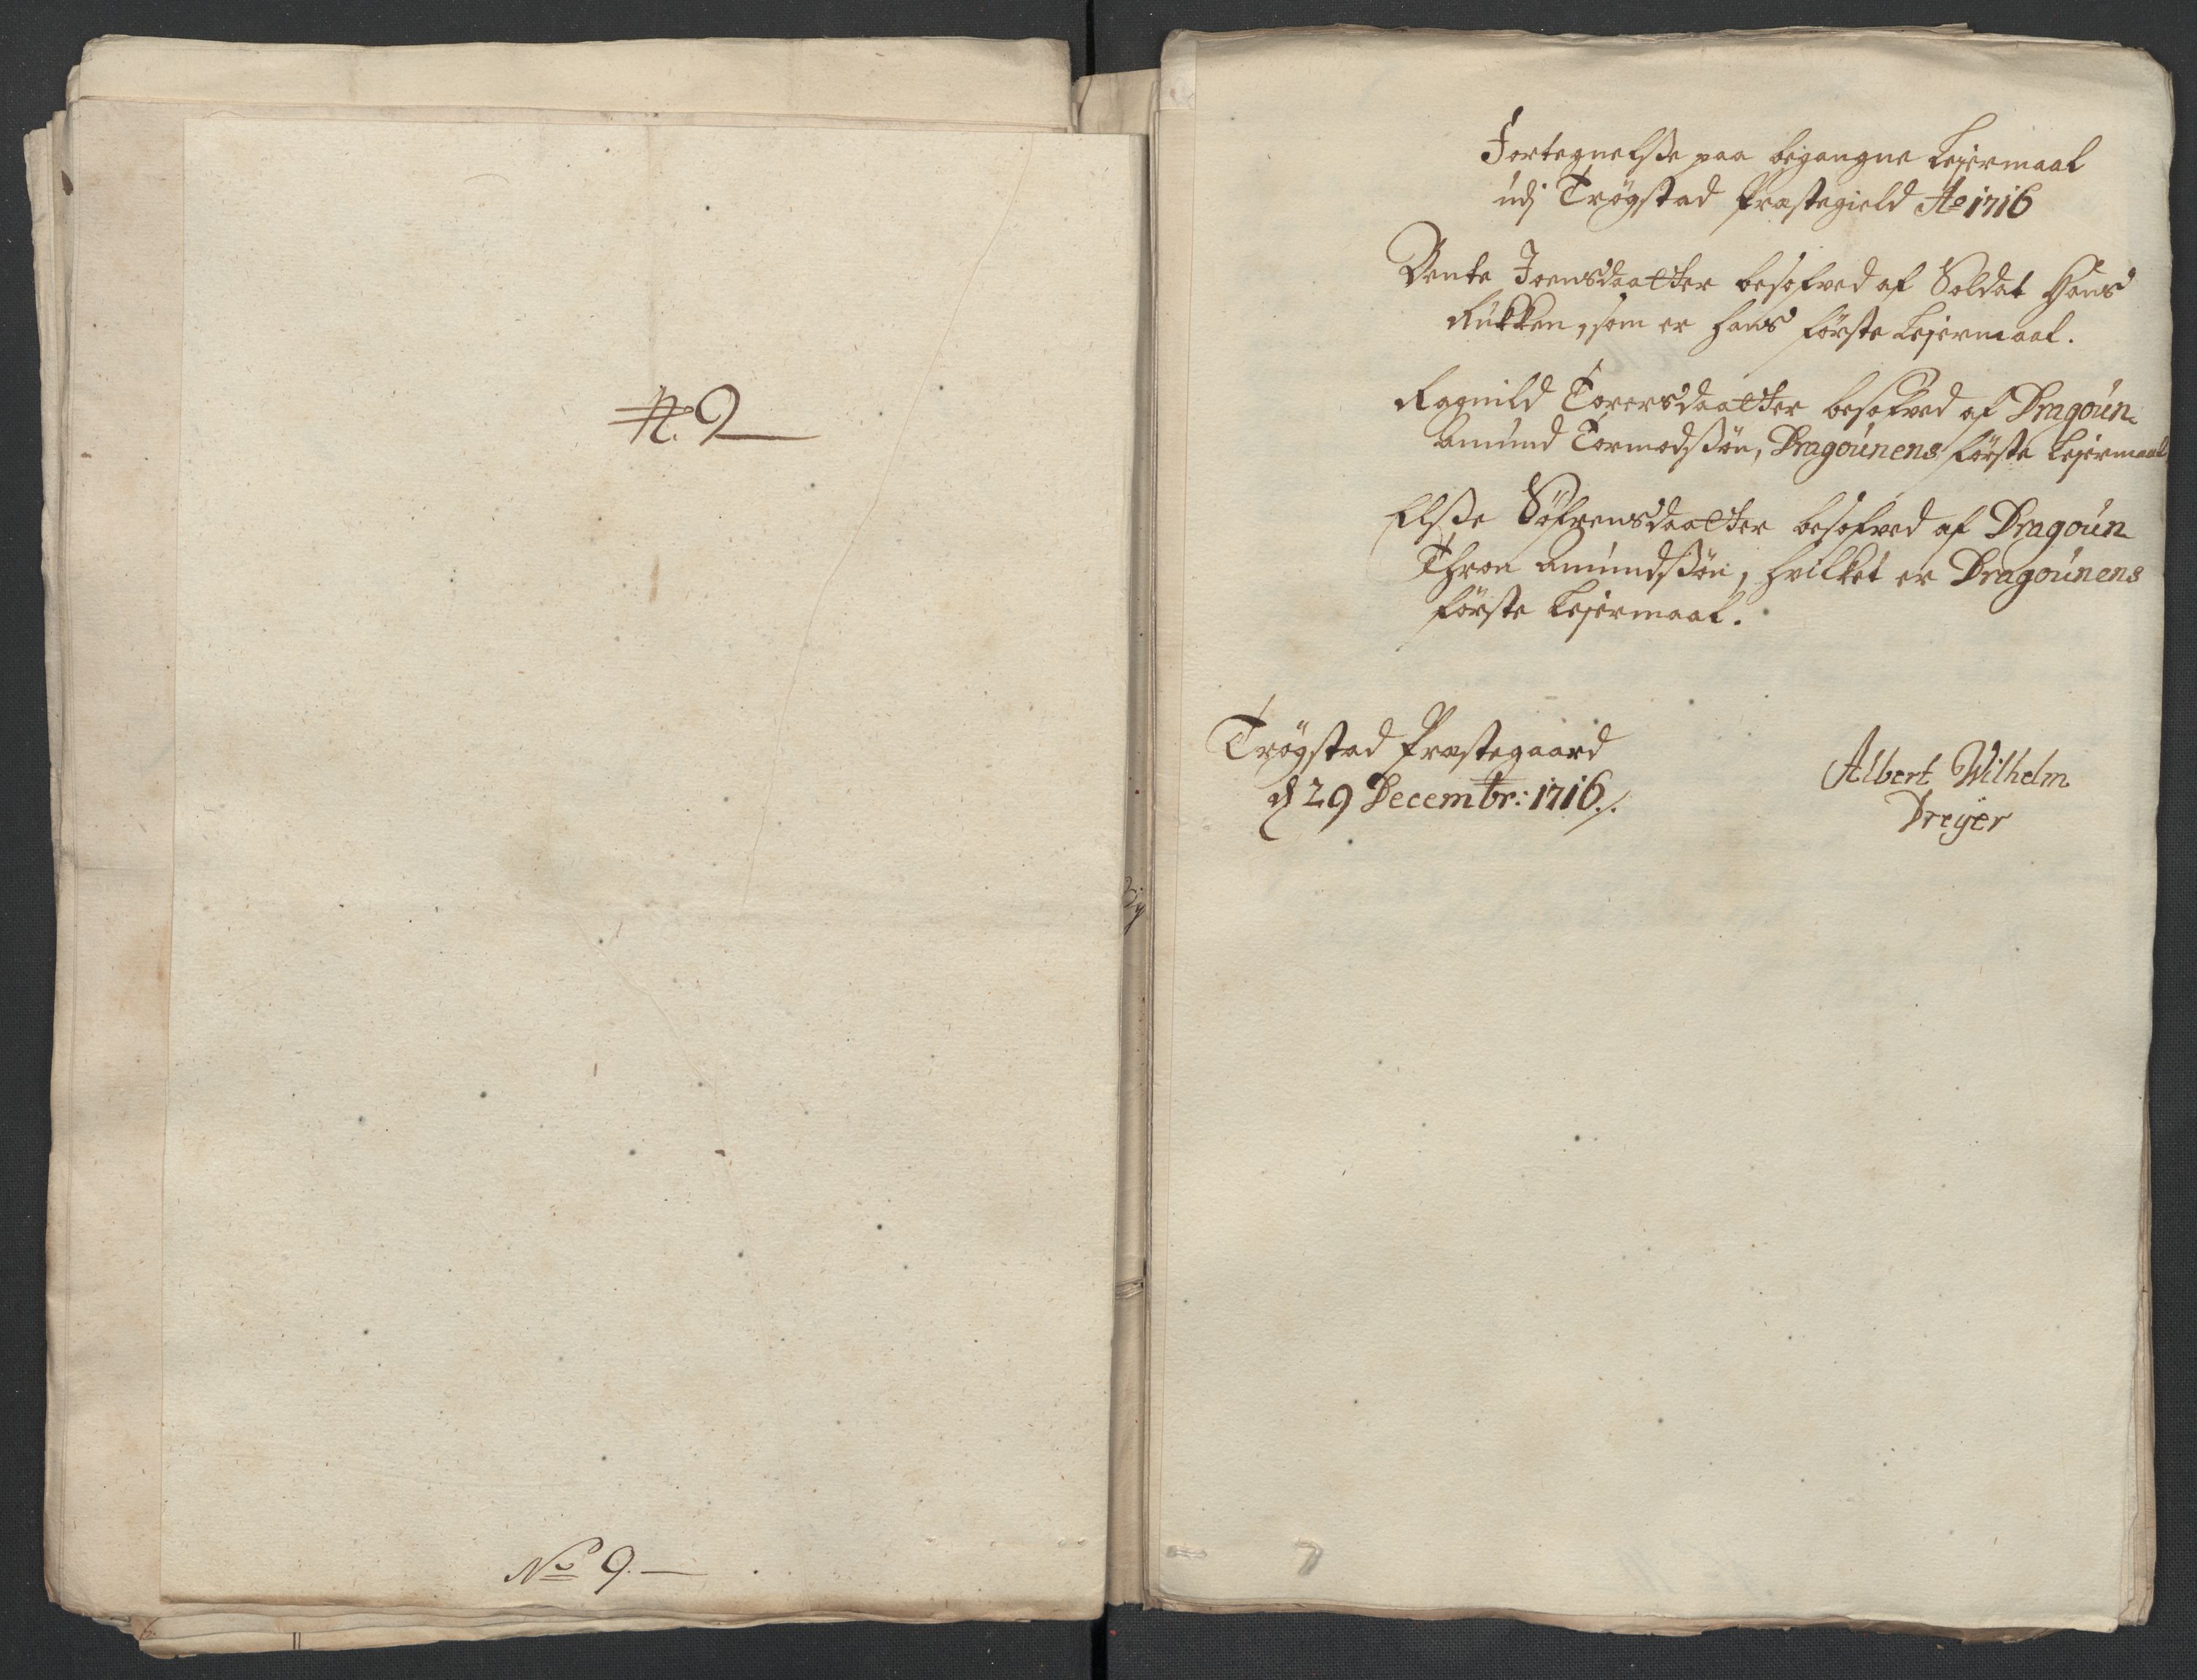 N. 9
No 9.
Fortegnelsse paa begangne Lejermaal
udj Trögstad Præstegield Ao 1716
Dente Joensdaatter besofved af Soldat Hans
Rukken, som er hans förste Lejermaal.
Ragnild Torersdaatter besofved af Dragoun
Amund Tormodssön, Dragounens förste Lejermaal
Elsse Söfrensdaatter besofved af Dragoun
Thron Amundssön, hvilket er Dragounens
förste Lejermaal.
Trögstad Præstegaard
d 29 Decembr: 1716./.
Albert Wilhelm
Dreyer